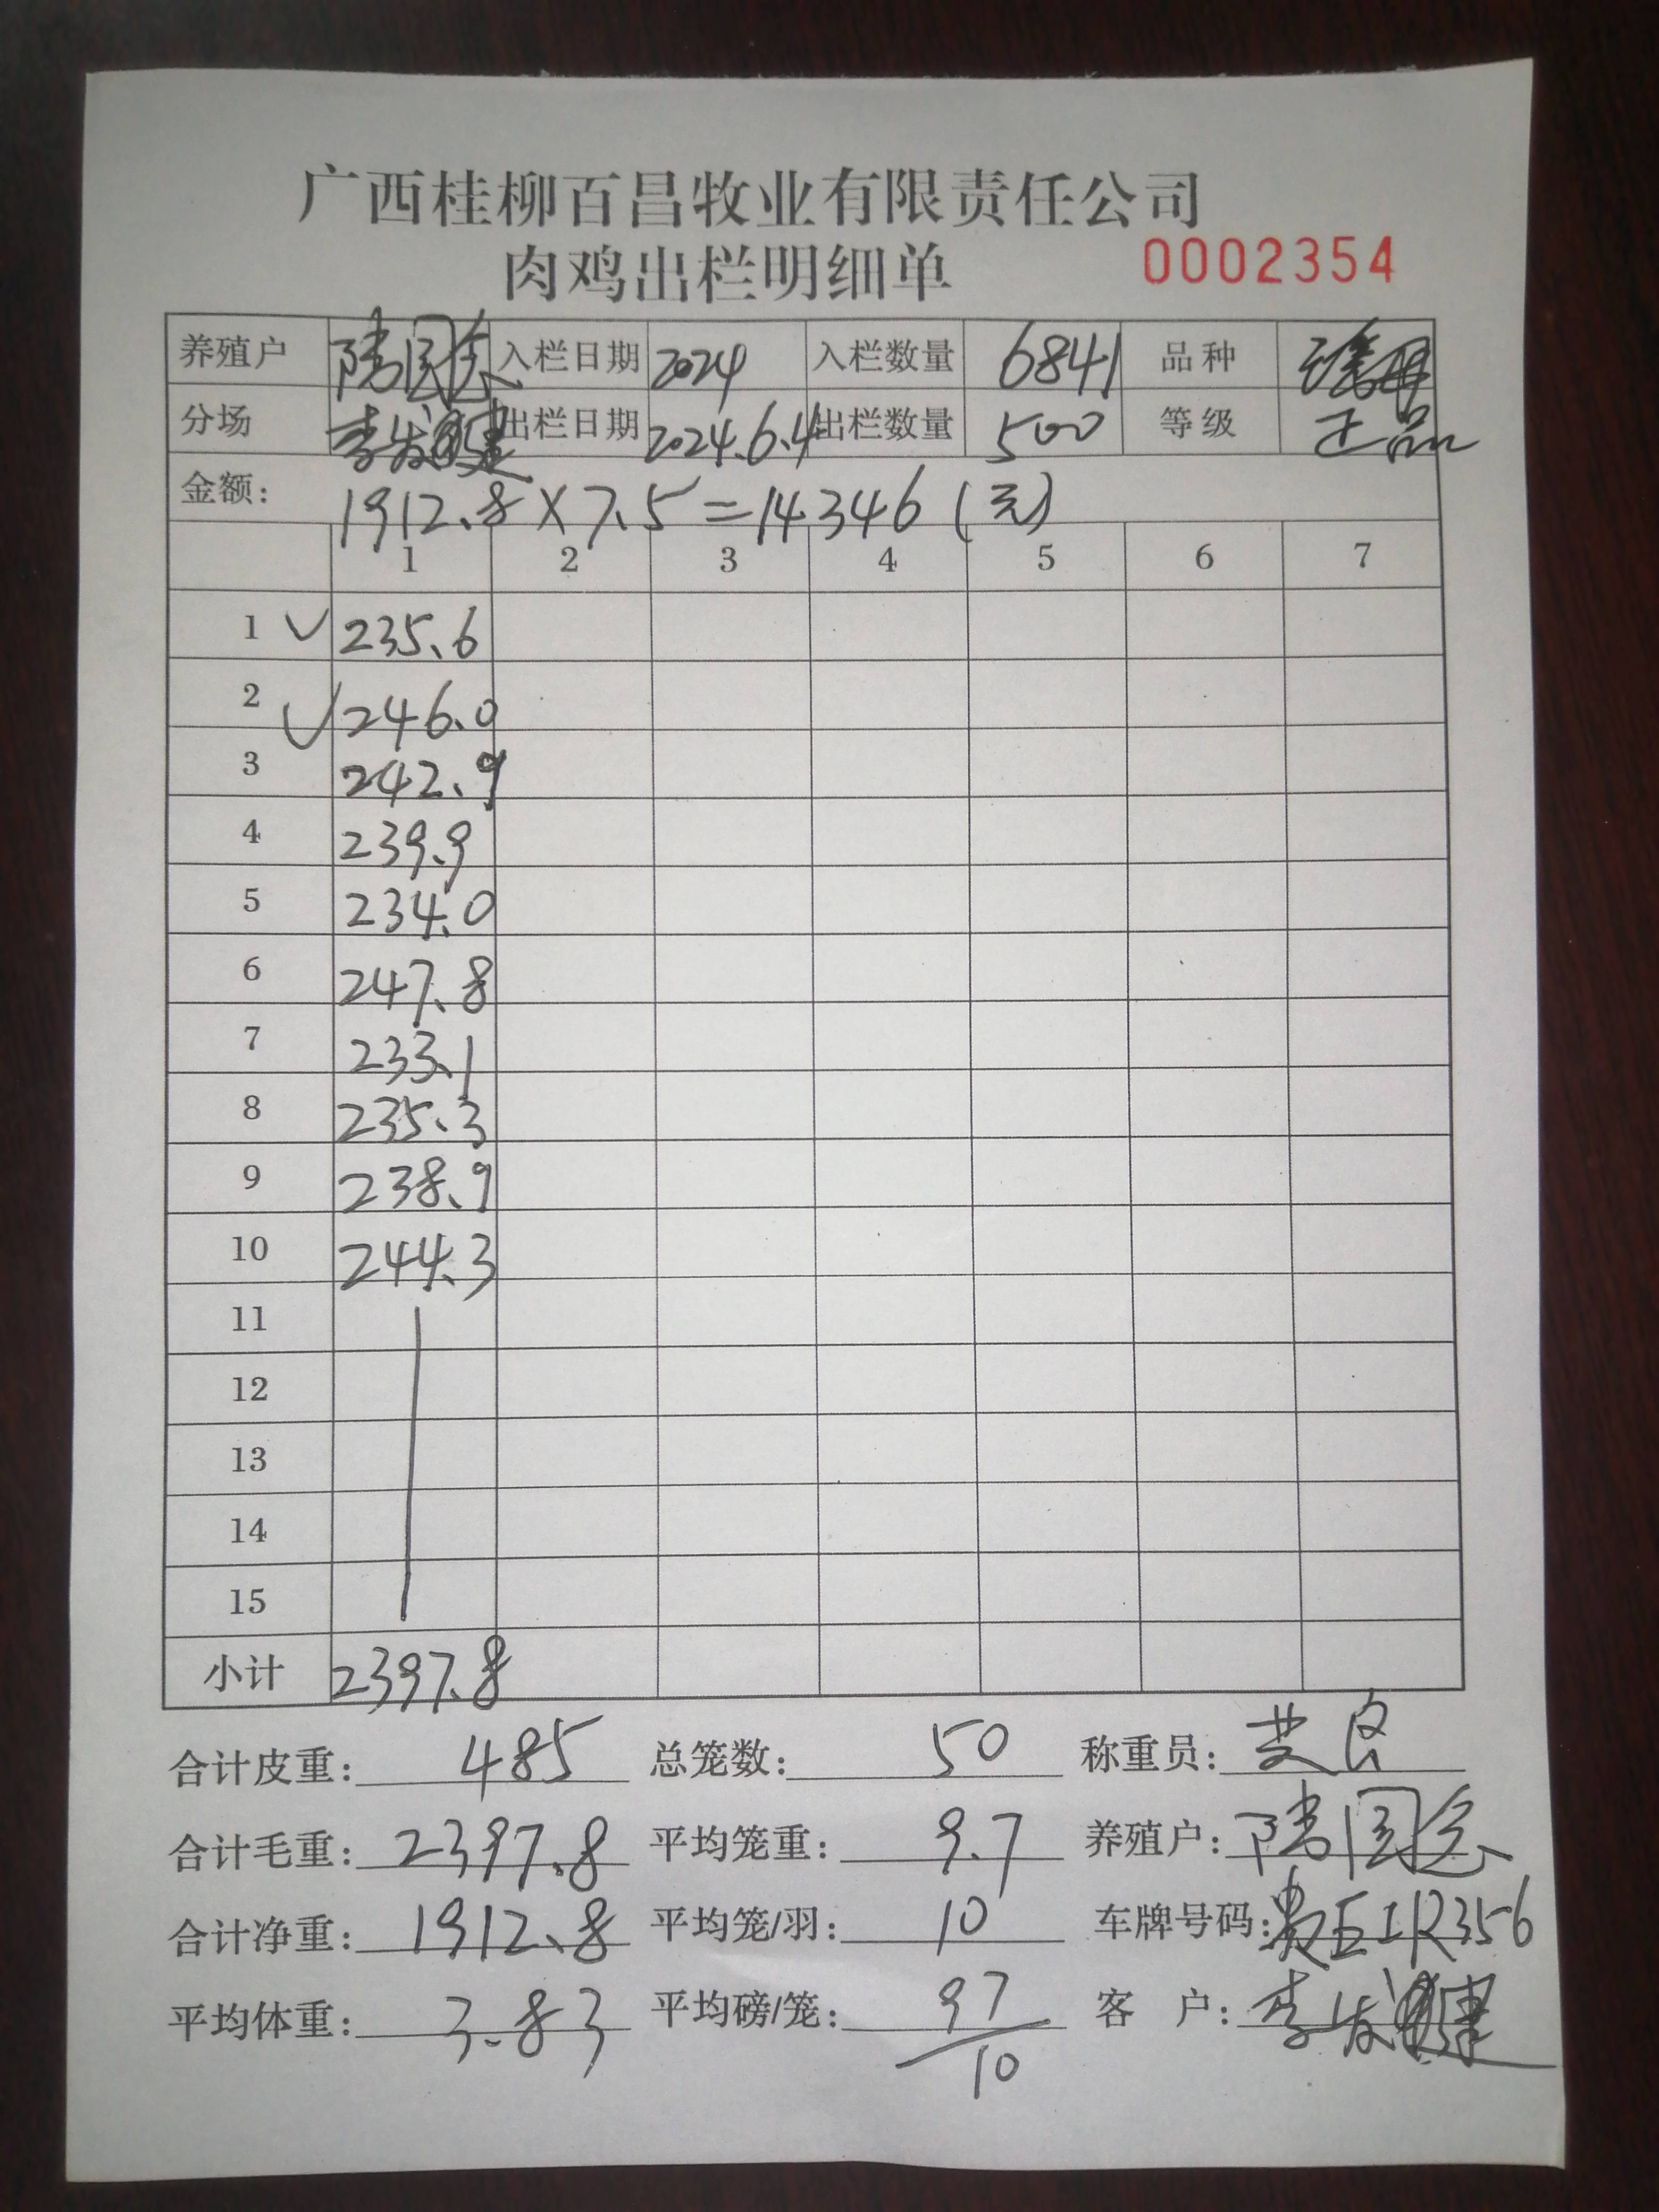 广西桂柳百昌牧业有限责任公司
肉鸡出栏明细单 0002354
养殖户 入栏日期 2024 入栏数量 6841 品种
分场 出栏日期 2024.6.4 出栏数量 500 等级 正品
金额: 1912.8×7.5=14346(元)
1 2 3 4 5 6 7
1 235.6
2 246.0
3 242.9
4 239.9
5 234.0
6 247.8
7 233.1
8 235.3
9 238.9
10 244.3
11
12
13
14
15
小计 2397.8
合计皮重: 485 总笼数: 50 称重员:
合计毛重: 2397.8 平均笼重: 9.7 养殖户:
合计净重: 1912.8 平均笼/羽: 10 车牌号码:
平均体重: 3.83 平均磅/笼: 97/10 客 户: